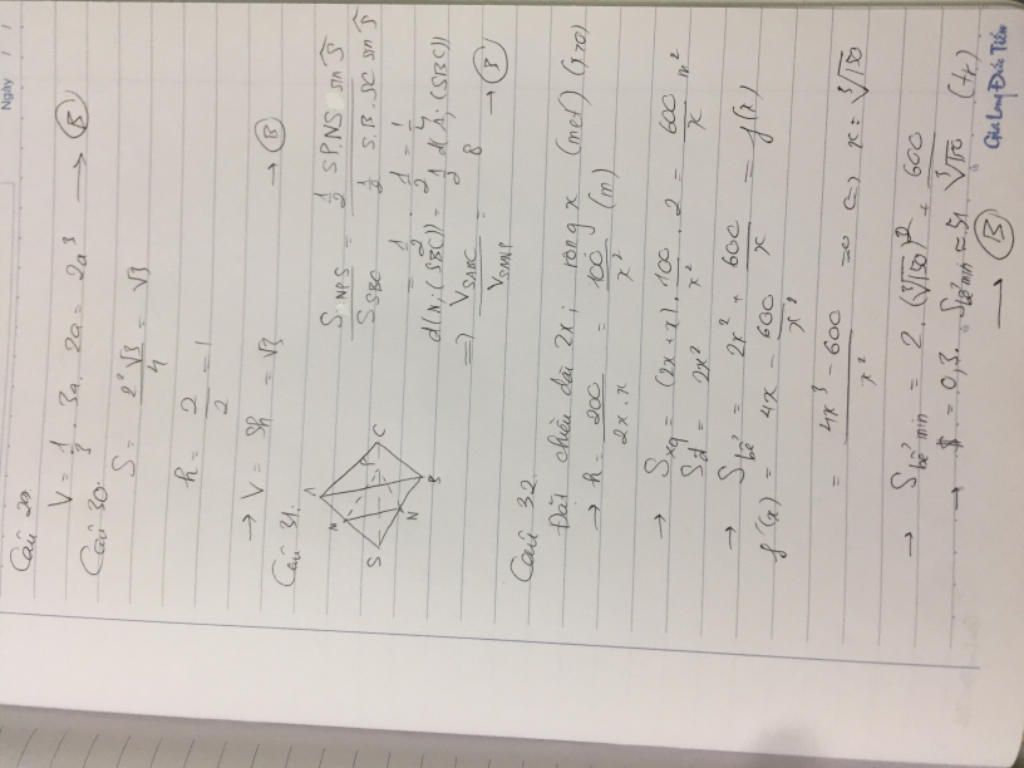 Ngày
Câu 29.
V = 1/3 . 3a . 2a = 2a³ → (B)
Câu 30.
S = 2²√3/4 = √3
h = 2/2 = 1
→ V = Sh = √3 → (B)
Câu 31.
A
M
S
C
B
N
S NPS / S SBC = 1/2 SP.NS sin Ŝ / 1/2 SB.SC sin Ŝ
= 1/2 . 1/2 = 1/4
d(N; (SBC)) = 1/2 d(A; (SBC))
=> V SABC / V SMNP = 8 → (B)
Câu 32.
Đặt chiều dài 2x; rộng x (mét) (x>0)
→ h = 200/2x.x = 100/x² (m)
→ Sxq = (2x + x) . 100/x² . 2 = 600/x m²
Sđ = 2x²
→ Sbể = 2x² + 600/x = f(x)
f'(x) = 4x - 600/x²
= 4x³ - 600/x² = 0 (=) x = ∛150
→ Sbể min = 2 . (∛150)² + 600/∛150
→ $ = 0,3 . Sbể min ≈ 51 (tr)
→ (B)